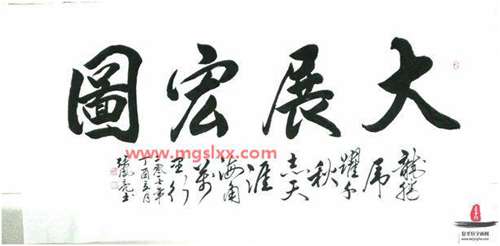 大展宏圖
龍騰
虎
躍千
秋
志天
涯
海角
萬
里行
丁酉五月
www.mgslxx.com